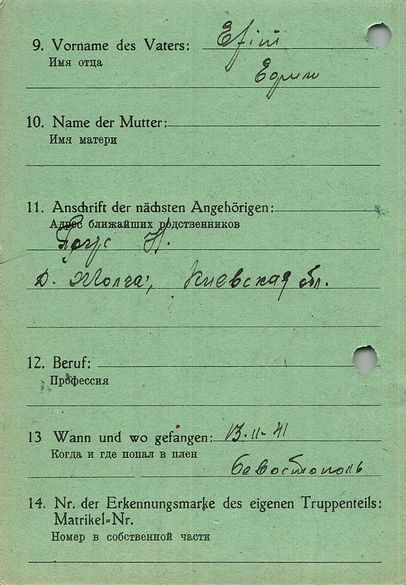 9. Vorname des Vaters: Efim
Имя отца
Ефим
10. Name der Mutter:
Имя матери
11. Anschrift der nächsten Angehörigen:
Адрес ближайших родственников
Н.
д. Киевская обл.
12. Beruf:
Профессия
13 Wann und wo gefangen: 13-11-41
Когда и где попал в плен
Севостополь
14. Nr. der Erkennungsmarke des eigenen Truppenteils:
Matrikel-Nr.
Номер в собственной части